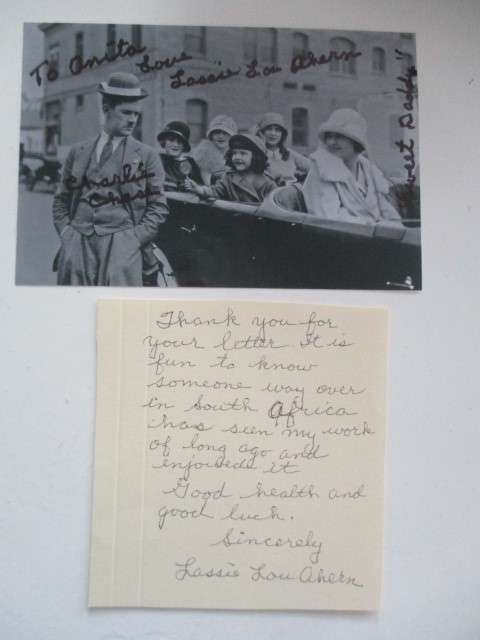 To Anita
Love
Lassie Lou Ahern
Charlie
Chase
"Sweet Daddy"
Thank you for
your letter. It is
fun to know
someone way over
in South Africa
has seen my work
of long ago and
enjoiyede it
Good health and
good luck.
Sincerely
Lassie Lou Ahern